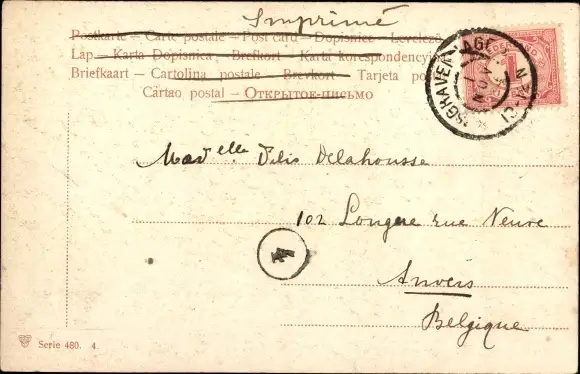 Imprimé
Postkarte – Carte postale – Post card – Dopisnice – Levelező
Lap – Karta Dopisnica – Brefkort – Karta korespondencyj
Briefkaart – Cartolina postale – Brevkort – Tarjeta po
Cartao postal – Открытое письмо
'SGRAVENHAGE
NOV
Mad elle Delahousse
102 Longue rue Neuve
Anvers
Belgique
4
Serie 480. 4.